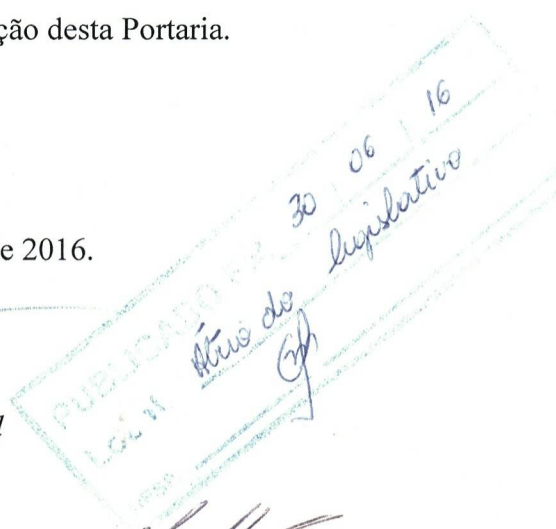 ção desta Portaria.
e 2016.
PUBLICADO 30 06 16
Átrio do legislativo